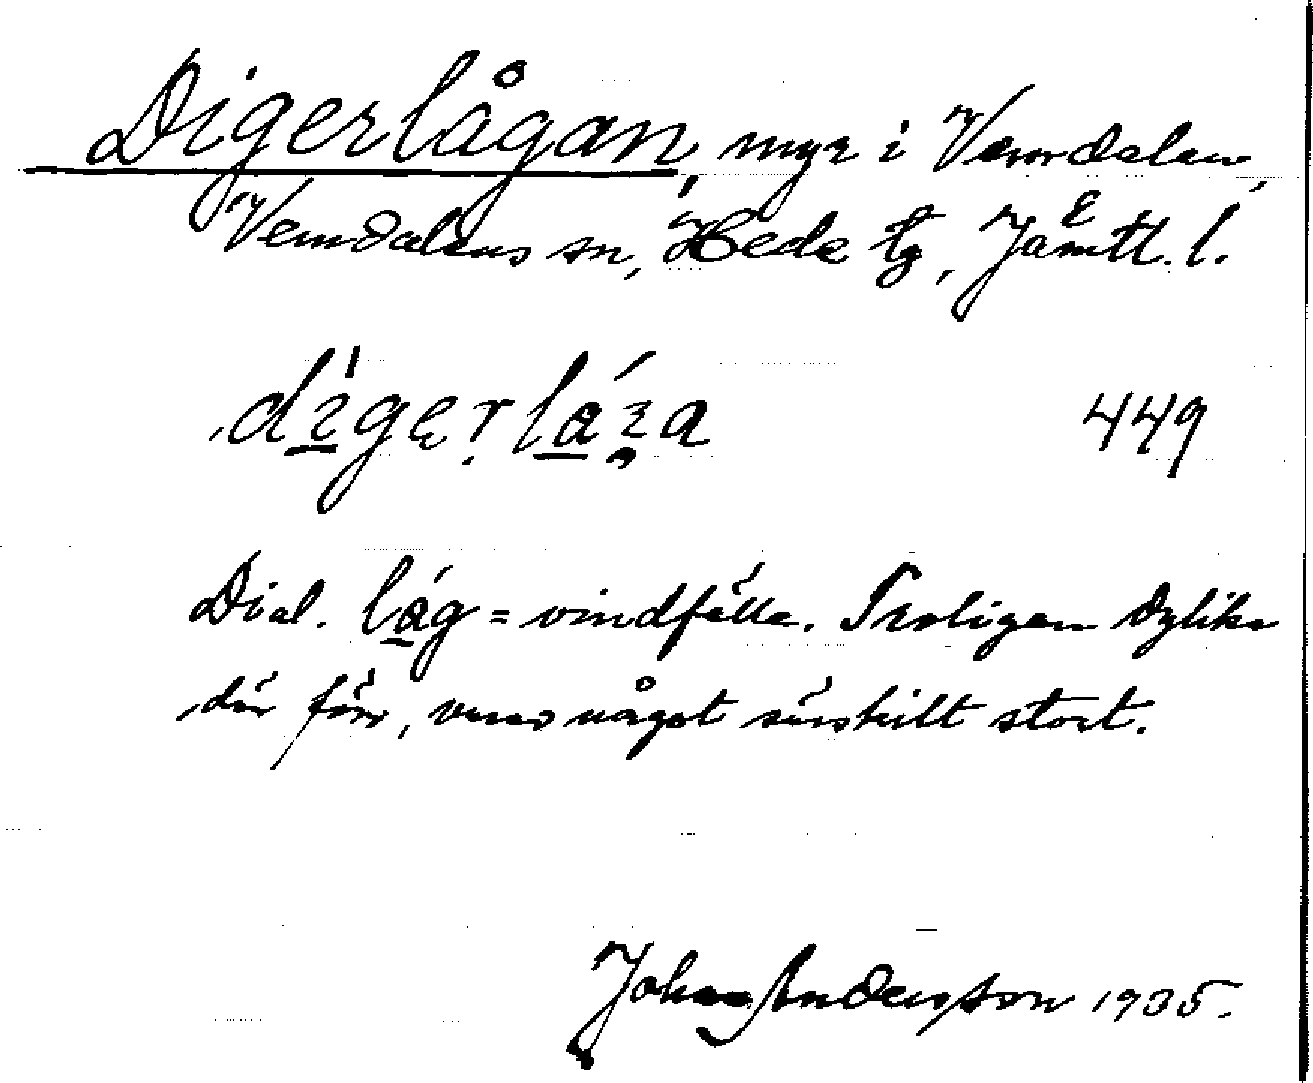 Digerlågan, myr i Vemdalen,
Vemdalens sn, Hede tg, Jämtl. l.
449
Dial. låg = vindfälle. Troligen dylika
där förr, varav något särskilt stort.
Johan Andersson 1935.